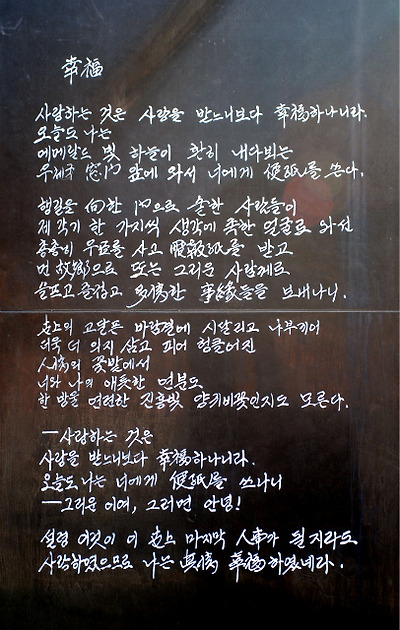 幸福
사랑하는 것은 사랑을 받느니보다 幸福하나니라.
오늘도 나는
에메랄드 빛 하늘이 환히 내다뵈는
우체국 窓門 앞에 와서 너에게 便紙를 쓴다.
행길을 向한 門으로 숱한 사람들이
제각기 한 가지씩 생각에 족한 얼굴로 와선
총총히 우표를 사고 電報紙를 받고
먼 故鄕으로 또는 그리운 사람께로
슬프고 즐겁고 多情한 事緣들을 보내나니.
세상의 고달픈 바람결에 시달리고 나부끼어
더욱 더 의지 삼고 피어 헝클어진
人情의 꽃밭에서
너와 나의 애틋한 연분도
한 방울 연련한 진홍빛 양귀비꽃인지도 모른다.
―사랑하는 것은
사랑을 받느니보다 幸福하나니라.
오늘도 나는 너에게 便紙를 쓰나니
―그리운 이여, 그러면 안녕!
설령 이것이 이 世上 마지막 人事가 될지라도
사랑하였으므로 나는 眞情 幸福하였네라.